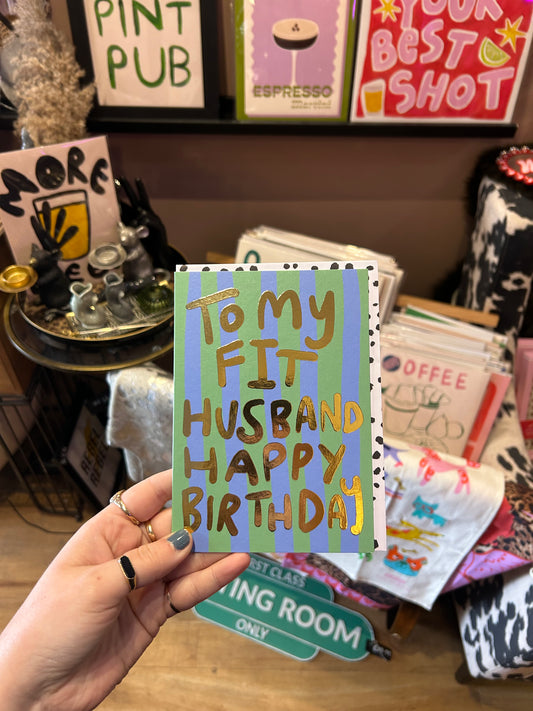 PINT
PUB
ESPRESSO
Martini
YOUR
BEST
SHOT
MORE
TO MY
FIT
HUSBAND
HAPPY
BIRTHDAY
COFFEE
FIRST CLASS
ROOM
ONLY